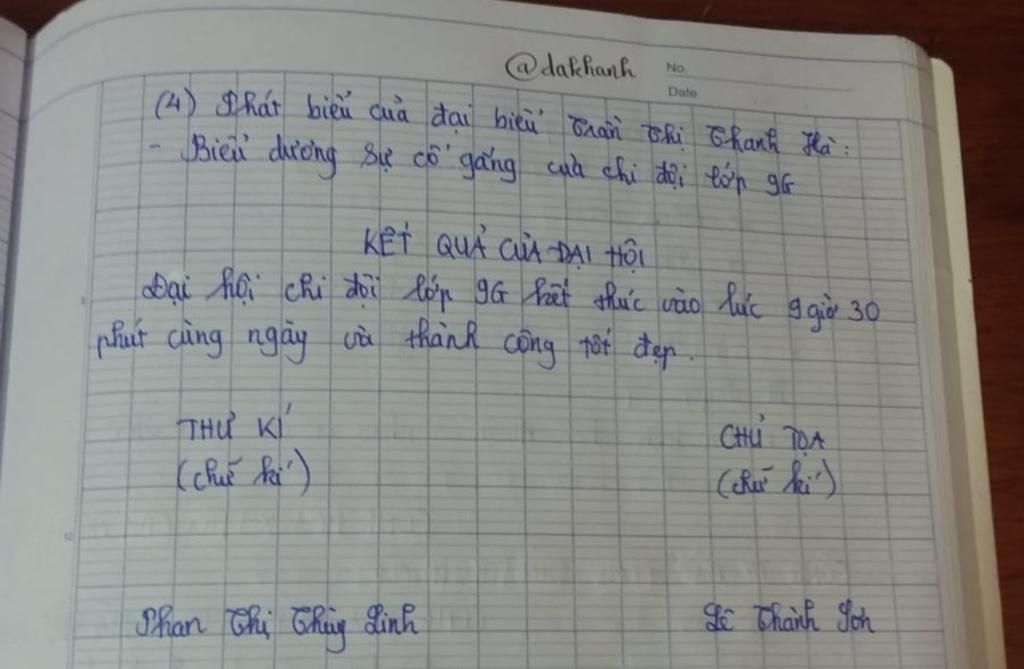 @dakhanh
No.
Date
(4) Phát biểu của đại biểu Trần Thị Thanh Hà:
- Biểu dương sự cố gắng của chi đội lớp 9G
KẾT QUẢ CỦA ĐẠI HỘI
Đại hội chi đội lớp 9G kết thúc vào lúc 9 giờ 30
phút cùng ngày và thành công tốt đẹp.
THƯ KÍ CHỦ TỌA
(chữ kí) (chữ kí)
Phan Thị Thùy Linh Lê Thành Sơn